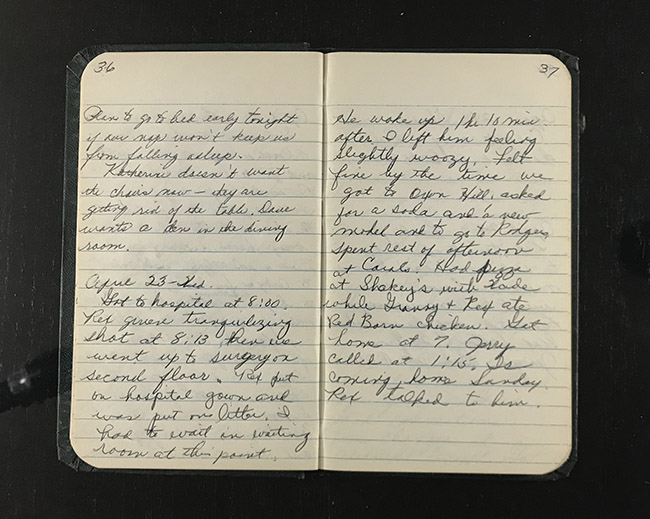 36
Plan to go to bed early tonight
if our nap won't keep us
from falling asleep.
Katherine doesn't want
the chairs now – they are
getting rid of the table. Dave
wants a den in the dining
room.
April 23 – Wed.
Got to hospital at 8:00
Rex given tranquilizing
shot at 8:13, then we
went up to surgery on
second floor. Rex put
on hospital gown and
was put on litter. I
had to wait in waiting
room at this point.
37
He woke up 1 hr 10 min
after I left him feeling
slightly woozy. Felt
fine by the time we
got to Oxon Hill, asked
for a soda and a new
model and to go to Rodgers
Spent rest of afternoon
at Carols. Had pizza
at Shakey's with
while Granny + Rex ate
Red Barn Chicken. Got
home at 7. Jerry
called at 1:15. Is
coming home Sunday.
Rex talked to him.